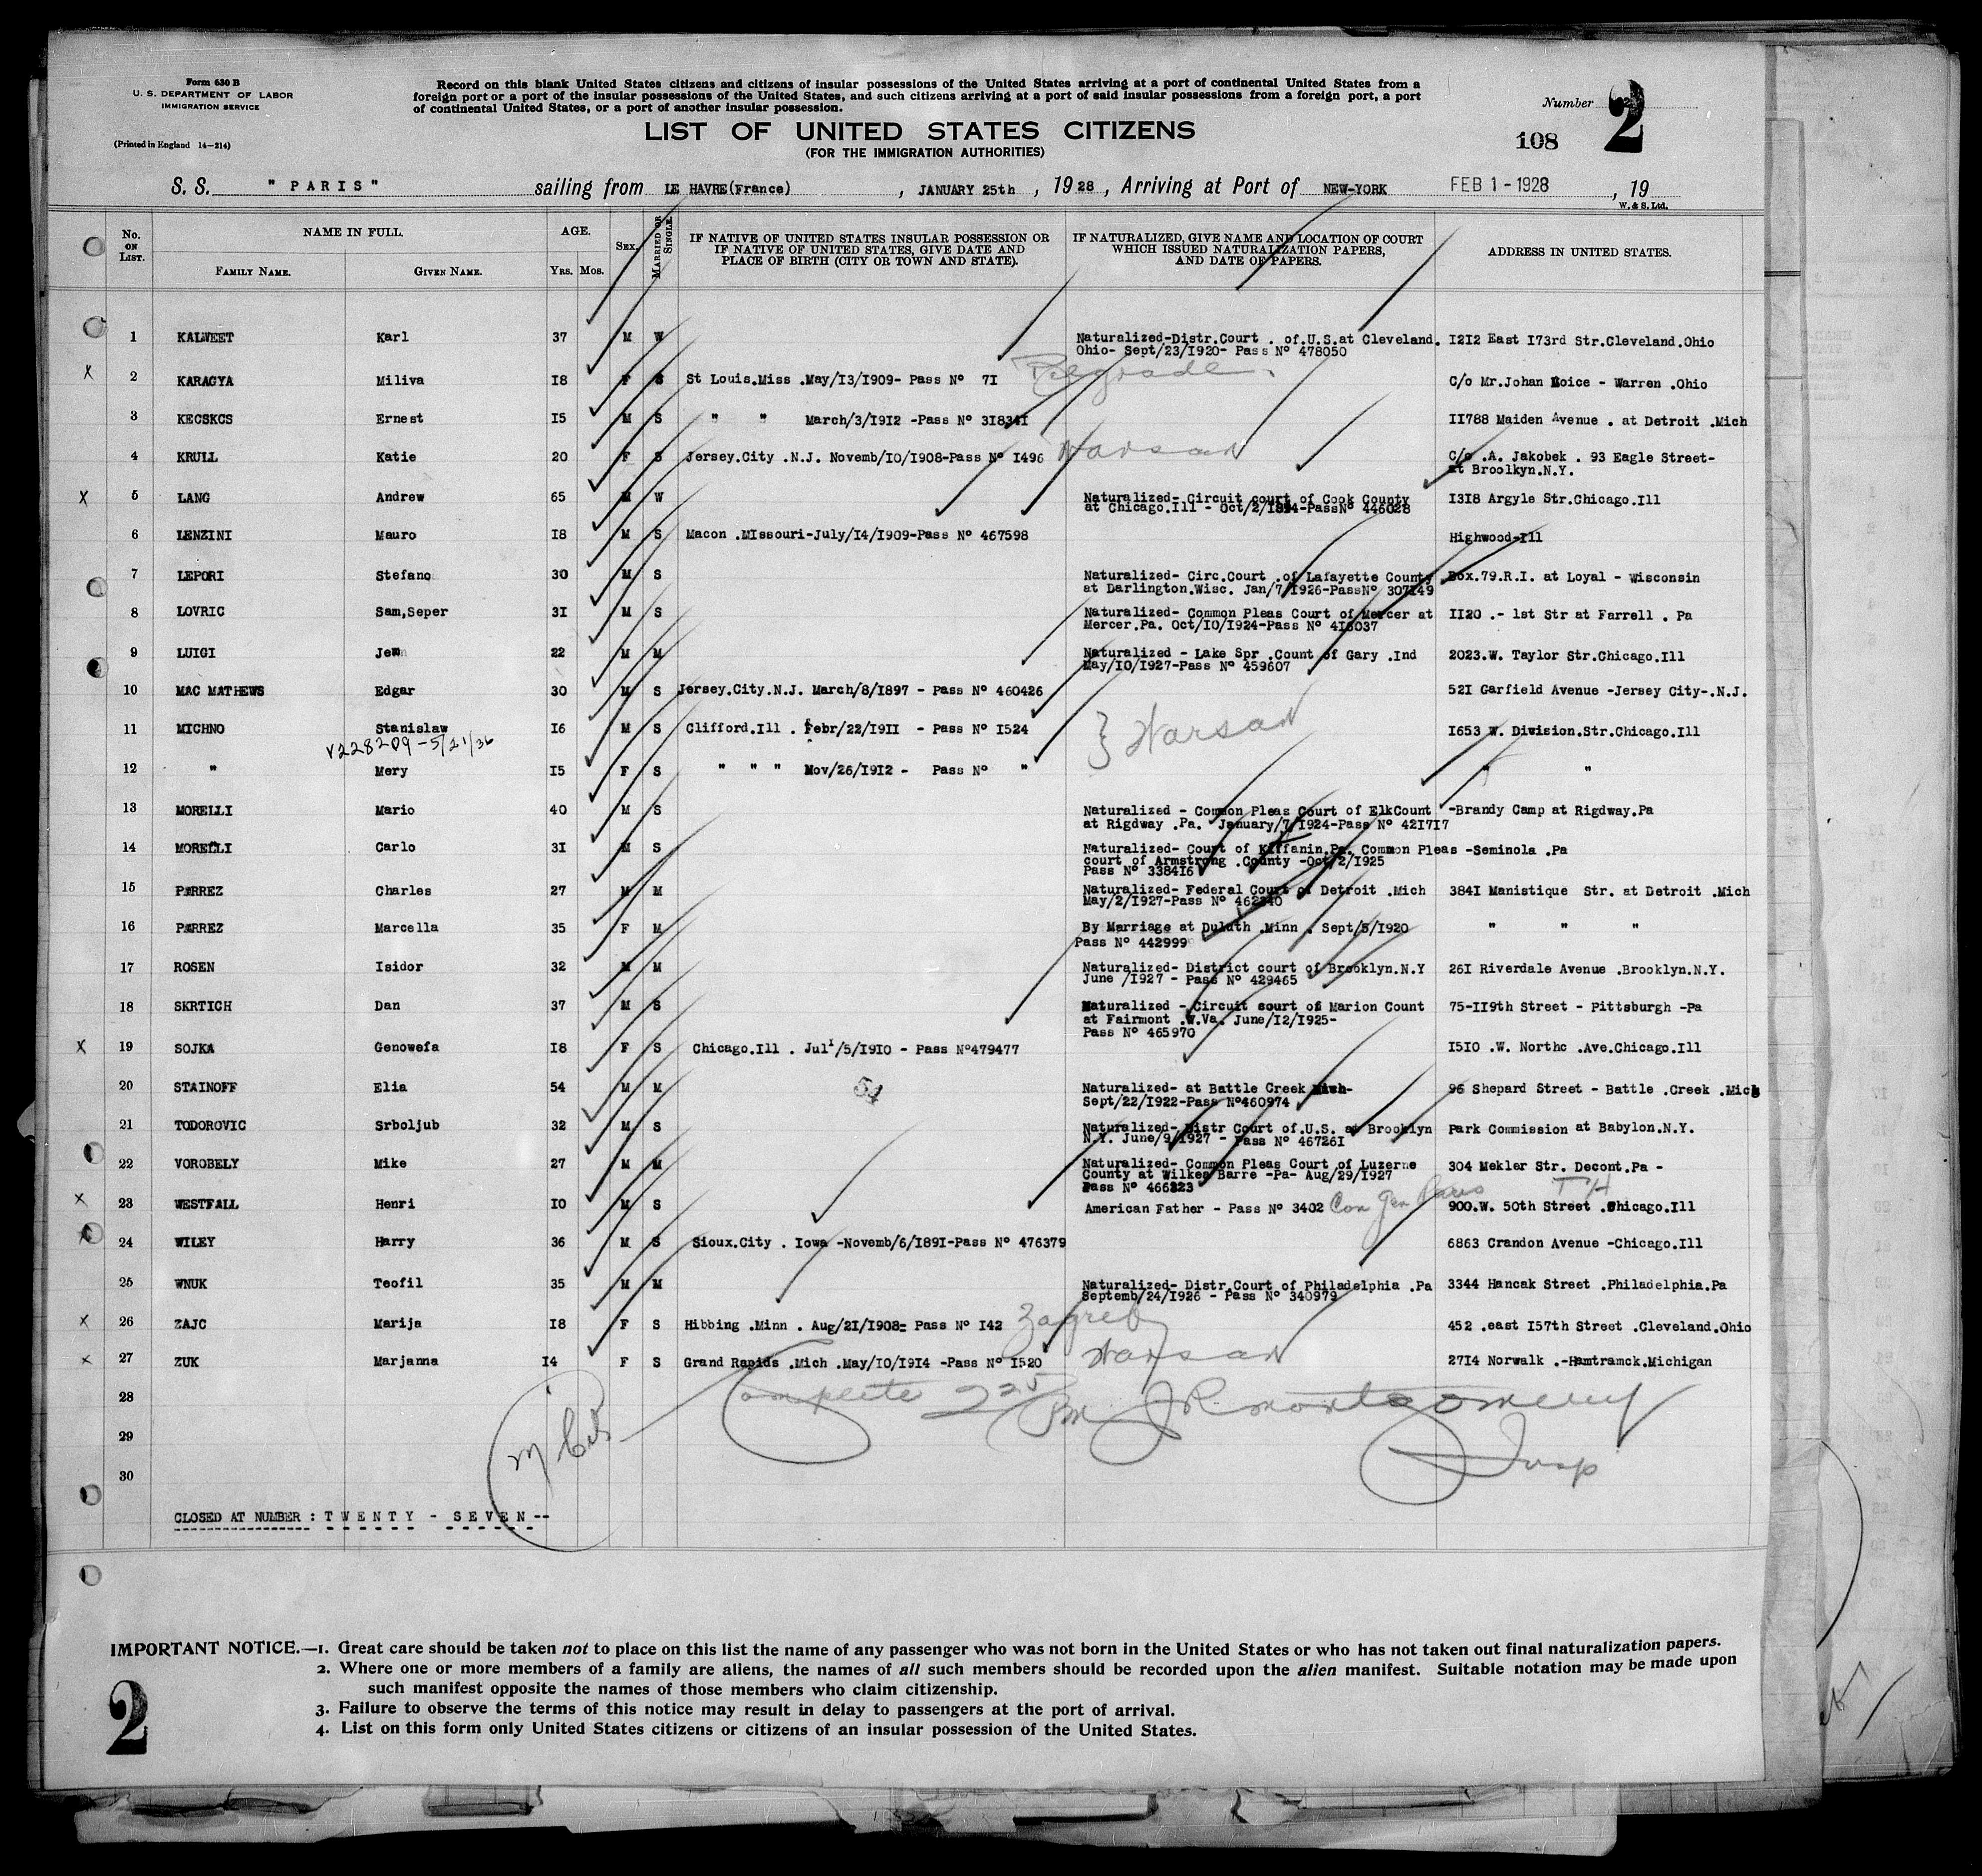 Form 630 B
U. S. DEPARTMENT OF LABOR
IMMIGRATION SERVICE
(Printed in England 14—214)
Record on this blank United States citizens and citizens of insular possessions of the United States arriving at a port of continental United States from a
foreign port or a port of the insular possessions of the United States, and such citizens arriving at a port of said insular possessions from a foreign port, a port
of continental United States, or a port of another insular possession.
LIST OF UNITED STATES CITIZENS
(FOR THE IMMIGRATION AUTHORITIES)
Number 2
108
S. S. " PARIS " sailing from LE HAVRE(France) , JANUARY 25th , 1928 , Arriving at Port of NEW-YORK FEB 1 - 1928 , 19
W. & S. Ltd.
No. ON LIST. NAME IN FULL. FAMILY NAME. GIVEN NAME. AGE. Yrs. Mos. SEX. MARRIED OR SINGLE. IF NATIVE OF UNITED STATES INSULAR POSSESSION OR IF NATIVE OF UNITED STATES, GIVE DATE AND PLACE OF BIRTH (CITY OR TOWN AND STATE). IF NATURALIZED, GIVE NAME AND LOCATION OF COURT WHICH ISSUED NATURALIZATION PAPERS, AND DATE OF PAPERS. ADDRESS IN UNITED STATES.
1 KALWEET Karl 37 M W Naturalized-Distr.Court . of.U.S.at Cleveland. I2I2 East I73rd Str.Cleveland.Ohio
Ohio- Sept/23/I920- Pass Nº 478050
X 2 KARAGYA Miliva I8 F S St Louis.Miss .May/I3/I909- Pass Nº 7I Belgrade. C/o Mr.Johan Koice - Warren .Ohio
3 KECSKCS Ernest I5 M S " " March/3/I9I2 -Pass Nº 3I834I II788 Maiden Avenue . at Detroit .Mich
4 KRULL Katie 20 F S Jersey.City .N.J. Novemb/I0/I908-Pass Nº I496 Warsaw C/o .A. Jakobek . 93 Eagle Street-
at Broolkyn.N.Y.
X 5 LANG Andrew 65 M W Naturalized- Circuit court of Cook County I3I8 Argyle Str.Chicago.Ill
at Chicago.Ill - Oct/2/I894-PassNº 446028
6 LENZINI Mauro I8 M S Macon .MIssouri-July/I4/I909-Pass Nº 467598 Highwood-Ill
7 LEPORI Stefano 30 M S Naturalized- Circ.Court .of Lafayette County Box.79.R.I. at Loyal - Wisconsin
at Darlington.Wisc. Jan/7/I926-PassNº 307I49
8 LOVRIC Sam,Seper 3I M S Naturalized- Common Pleas Court of Mercer at II20 .- lst Str at Farrell . Pa
Mercer.Pa. Oct/I0/I924-Pass Nº 4I6037
9 LUIGI 22 M M Naturalized - Lake Spr .Count of Gary .Ind 2023.W. Taylor Str.Chicago.Ill
May/I0/I927-Pass Nº 459607
10 MAC MATHEWS Edgar 30 M S Jersey.City.N.J. March/8/I897 - Pass Nº 460426 52I Garfield Avenue -Jersey City-.N.J.
11 MICHNO Stanislaw I6 M S Clifford.Ill . Febr/22/I9II - Pass Nº I524 } Warsaw I653 W. Division.Str.Chicago.Ill
V228209 - 5/21/36
12 " Mery I5 F S " " " Nov/26/I9I2 - Pass Nº " " "
13 MORELLI Mario 40 M S Naturalized - Common Pleas Court of ElkCount -Brandy Camp at Rigdway.Pa
at Rigdway .Pa. January/7/I924-Pass Nº 42I7I7
14 MORELLI Carlo 3I M S Naturalized- Court of Kittanin.Pa. Common Pleas -Seminola .Pa
court of Armstrong .County -Oct/2/I925
Pass Nº 3384I6
15 PERREZ Charles 27 M M Naturalized- Federal Court of Detroit .Mich 384I Manistique Str. at Detroit .Mich
May/2/I927-Pass Nº 462340
16 PERREZ Marcella 35 F M By Marriage at Duluth .Minn . Sept/5/I920 " " "
Pass Nº 442999
17 ROSEN Isidor 32 M M Naturalized- District court of Brooklyn.N.Y 26I Riverdale Avenue .Brooklyn.N.Y.
June /I927 - Pass Nº 429465
18 SKRTICH Dan 37 M S Naturalized - Circuit court of Marion Count 75-II9th Street - Pittsburgh -Pa
at Fairmont .W.Va. June/I2/I925-
Pass Nº 465970
X 19 SOJKA Genowefa I8 F S Chicago.Ill . Jul /5/I9I0 - Pass Nº479477 I5I0 .W. Northc .Ave.Chicago.Ill
20 STAINOFF Elia 54 M M 54 Naturalized- at Battle Creek Mich- 96 Shepard Street - Battle .Creek .Mich
Sept/22/I922-Pass Nº460974
21 TODOROVIC Srboljub 32 M S Naturalized- Distr Court of.U.S. at Brooklyn Park Commission at Babylon.N.Y.
N.Y. June/9/I927 - Pass Nº 46726I
22 VOROBELY Mike 27 M M Naturalized- Common Pleas Court of Luzerne 304 Mekler Str. Decont.Pa -
County at Wilkes Barre -Pa- Aug/29/I927
Pass Nº 466323
X 23 WESTFALL Henri I0 M S American Father - Pass Nº 3402 Con Gen Paris 900.W. 50th Street .Chicago.Ill
24 WILEY Harry 36 M S Sioux.City . Iowa -Novemb/6/I89I-Pass Nº 476379 6863 Crandon Avenue -Chicago.Ill
25 WNUK Teofil 35 M M Naturalized- Distr.Court of Philadelphia .Pa 3344 Hancak Street .Philadelphia.Pa
Septemb/24/I926 - Pass Nº 340979
X 26 ZAJC Marija I8 F S Hibbing .Minn . Aug/2I/I908- Pass Nº I42 Zagreb 452 .east I57th Street .Cleveland.Ohio
X 27 ZUK Marjanna I4 F S Grand Rapids .Mich .May/I0/I9I4 -Pass Nº I520 Warsaw 27I4 Norwalk .-Hamtramck.Michigan
28 Complete 2 25 PM J R Montgomery
29 Insp
30
CLOSED AT NUMBER : T W E N T Y - S E V E N --
IMPORTANT NOTICE.—1. Great care should be taken not to place on this list the name of any passenger who was not born in the United States or who has not taken out final naturalization papers.
2. Where one or more members of a family are aliens, the names of all such members should be recorded upon the alien manifest. Suitable notation may be made upon
such manifest opposite the names of those members who claim citizenship.
3. Failure to observe the terms of this notice may result in delay to passengers at the port of arrival.
4. List on this form only United States citizens or citizens of an insular possession of the United States.
2